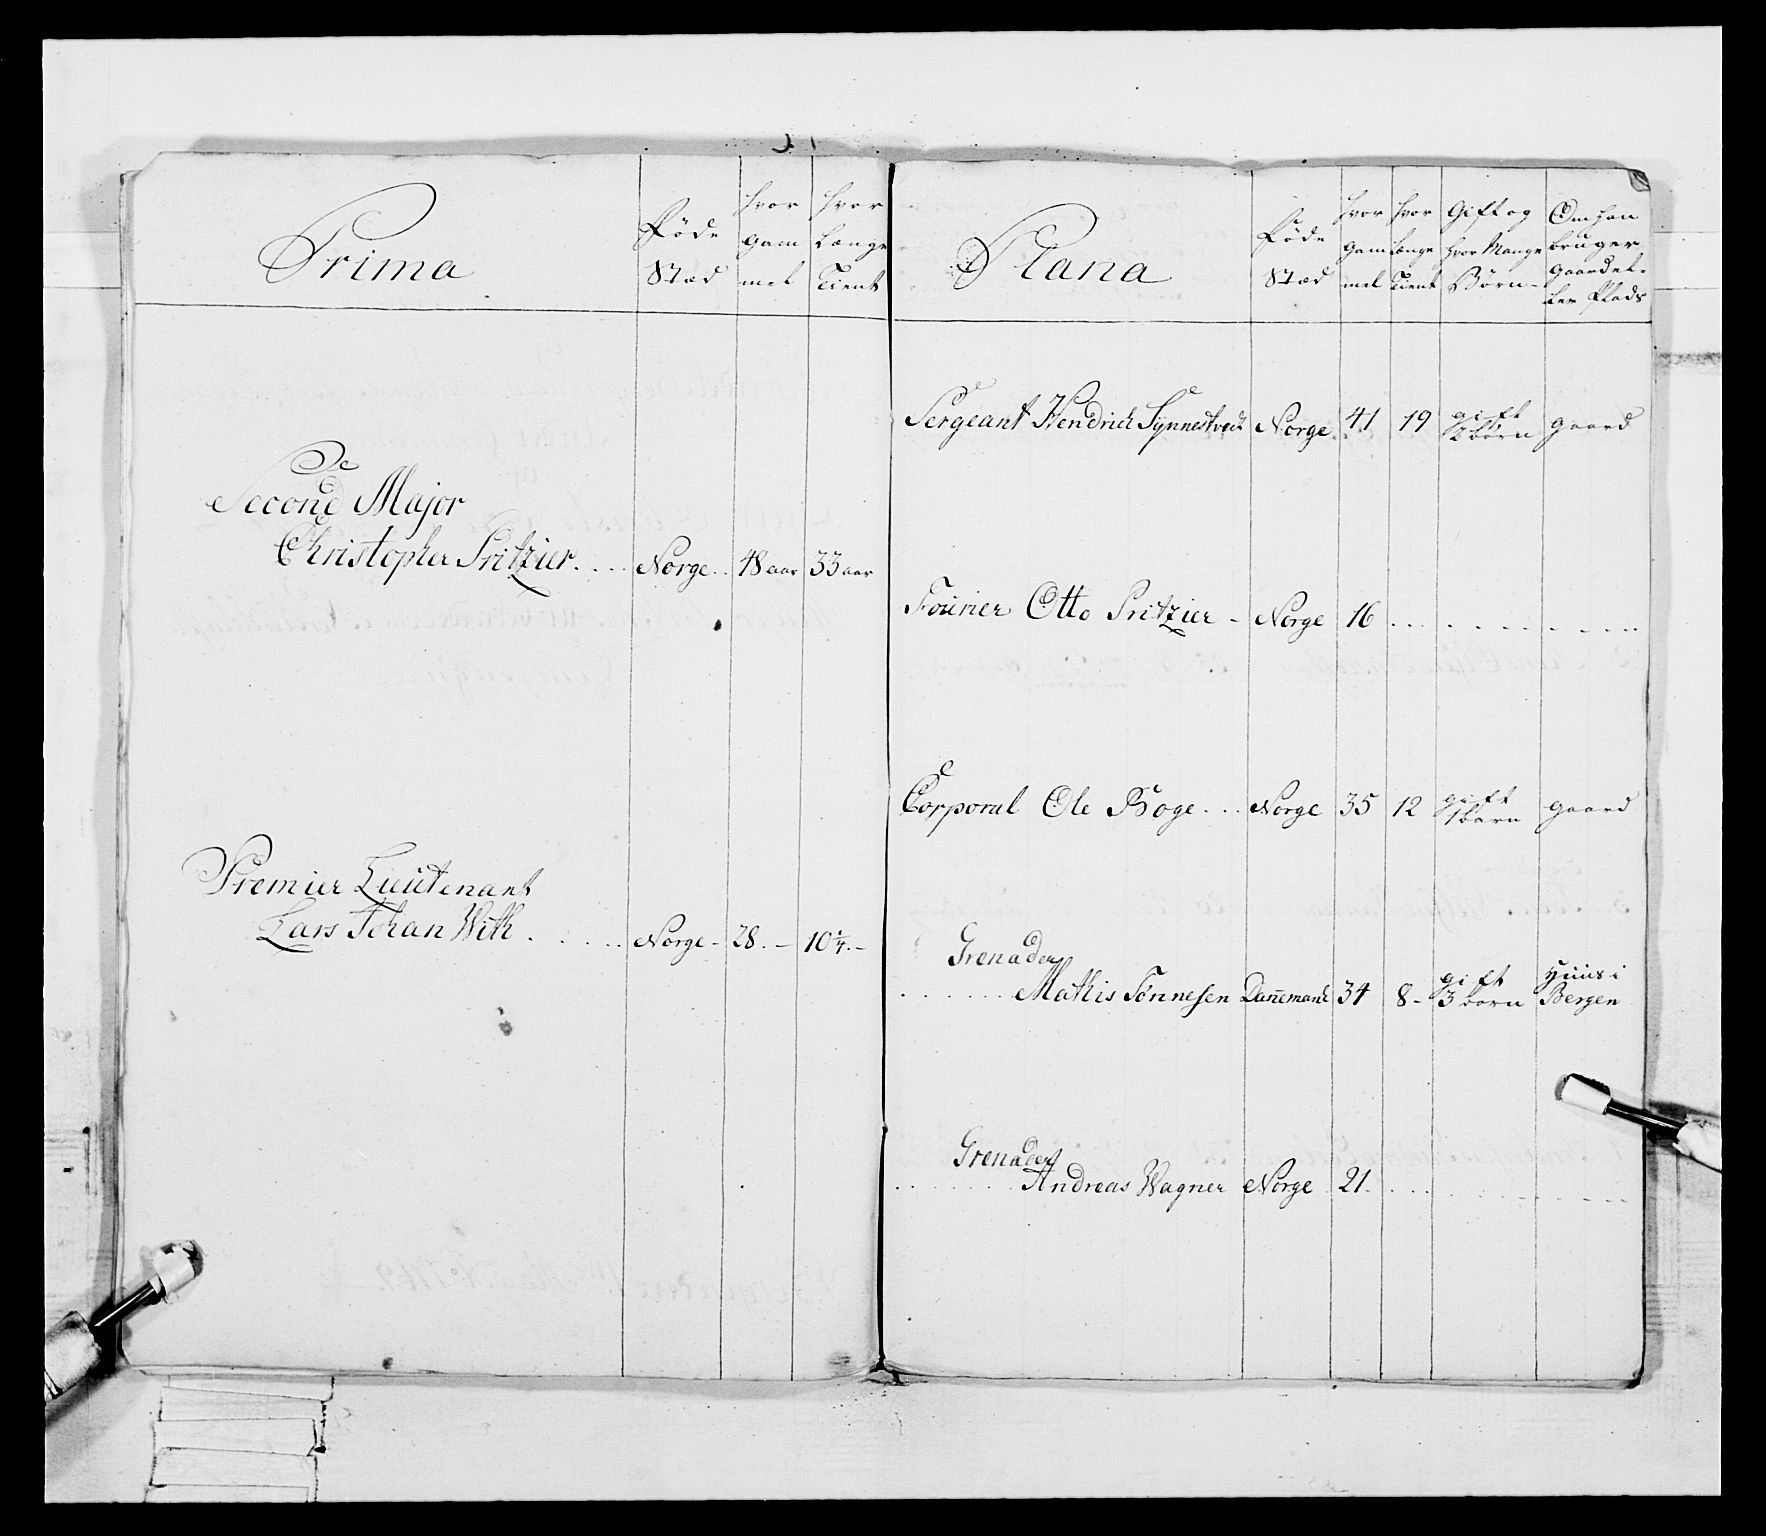 Prima
Føde
Stæd
hvor
gam
mel
hvor
Længe
Tient
Second Major
Christopher Pritzier.... Norge.. 48 aar 33 aar
Premier Lieutenant
Lars Johan With...... Norge - 28. - 10 1/4. -
Plana
Føde
Stæd
hvor
gam
mel
hvor
Længe
Tient
Gift og
hvor Mange
Børn -
Om han
bruger
gaard el-
ler Plads
Sergeant Hendrich Synnestvedt Norge. 41 19 gift
2 børn gaard
Fourier Otto Pritzier - Norge 16 ..........
Corporal Ole Boge... Norge 35 12 gift
1 barn gaard
Grenader
....... Mathis Tønnesen Dannemand 34 8 - gift
3 børn Huus i
Bergen
Grenader
....... Andreas Wagner Norge 21 ..........